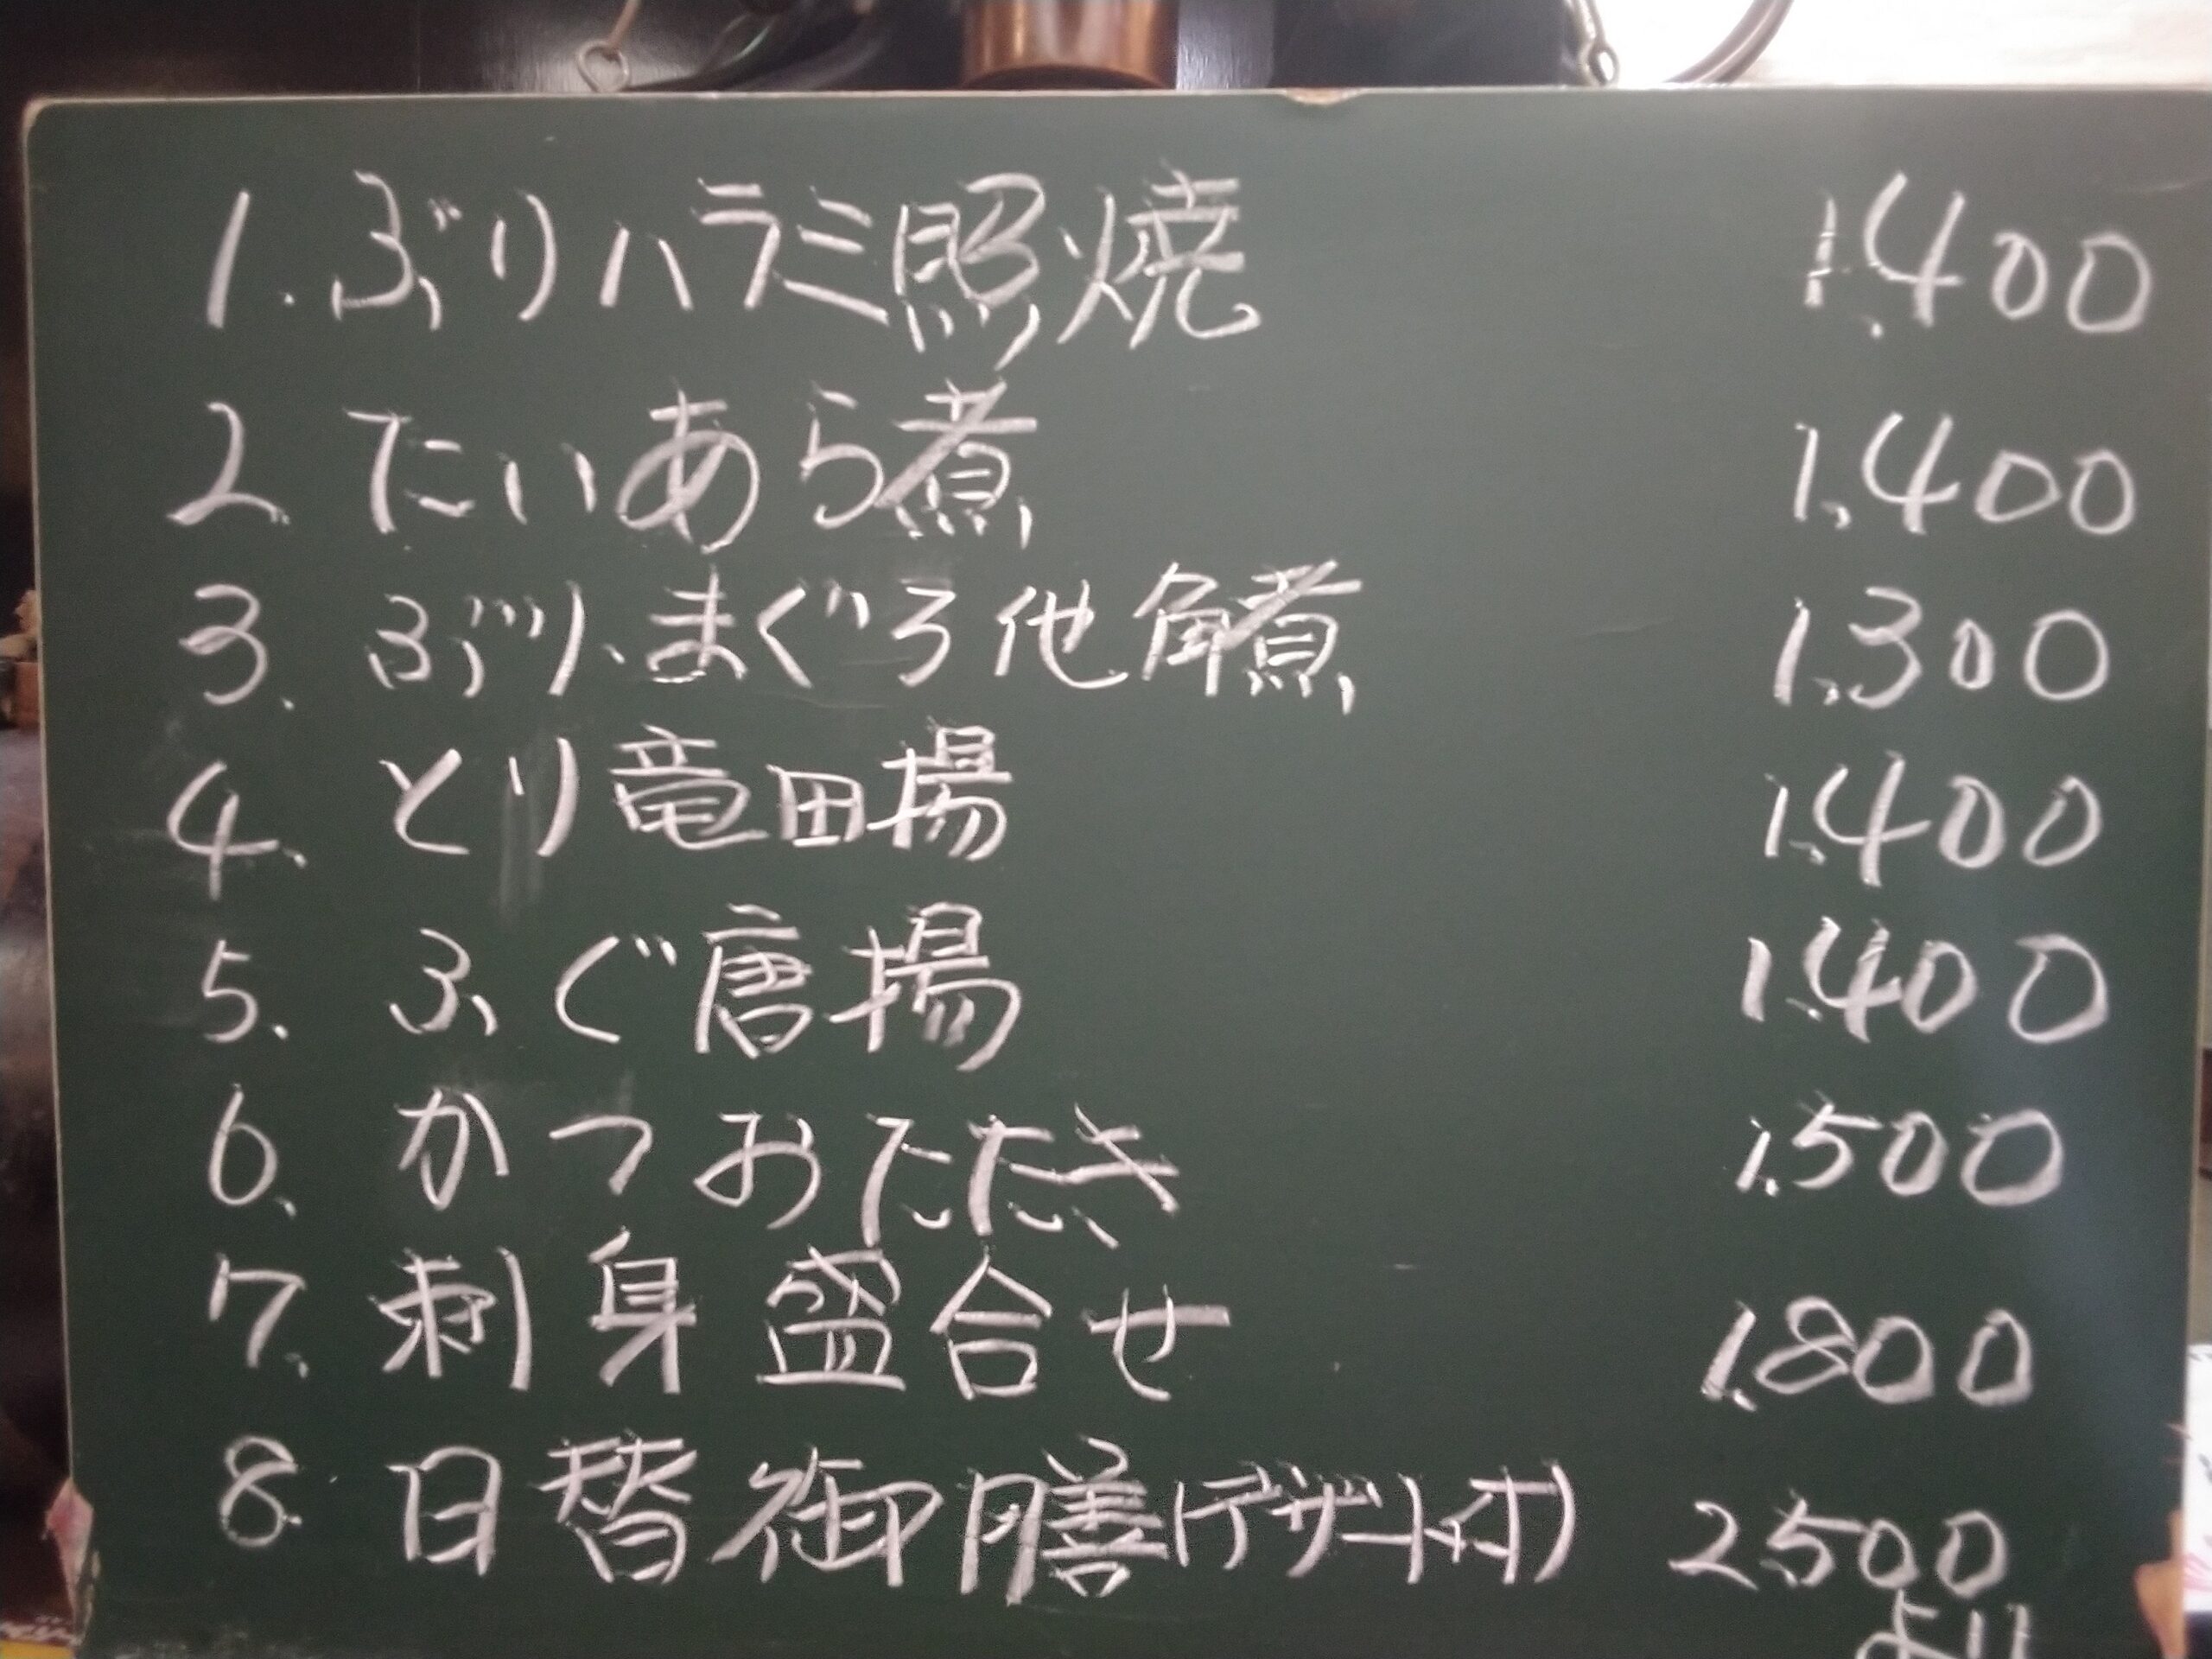 1. ぶりハラミ照焼 1.400
2. たいあら煮 1.400
3. ぶり、まぐろ他角煮 1.300
4. とり竜田揚 1.400
5. ふぐ唐揚 1.400
6. かつおたたき 1.500
7. 刺身盛合せ 1.800
8. 日替御膳(デザート付) 2.500
より